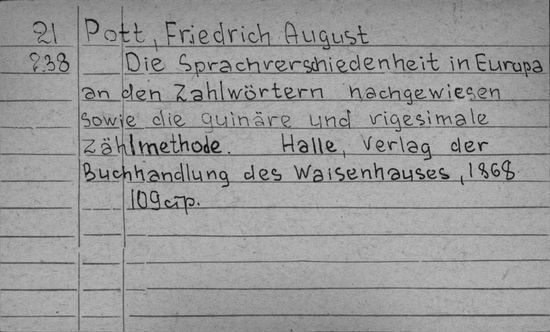 21 Pott, Friedrich August
238 Die Sprachverschiedenheit in Europa
an den Zahlwörtern nachgewiesen
sowie die quinäre und vigesimale
Zählmethode. Halle, Verlag der
Buchhandlung des Waisenhauses, 1868
109 стр.